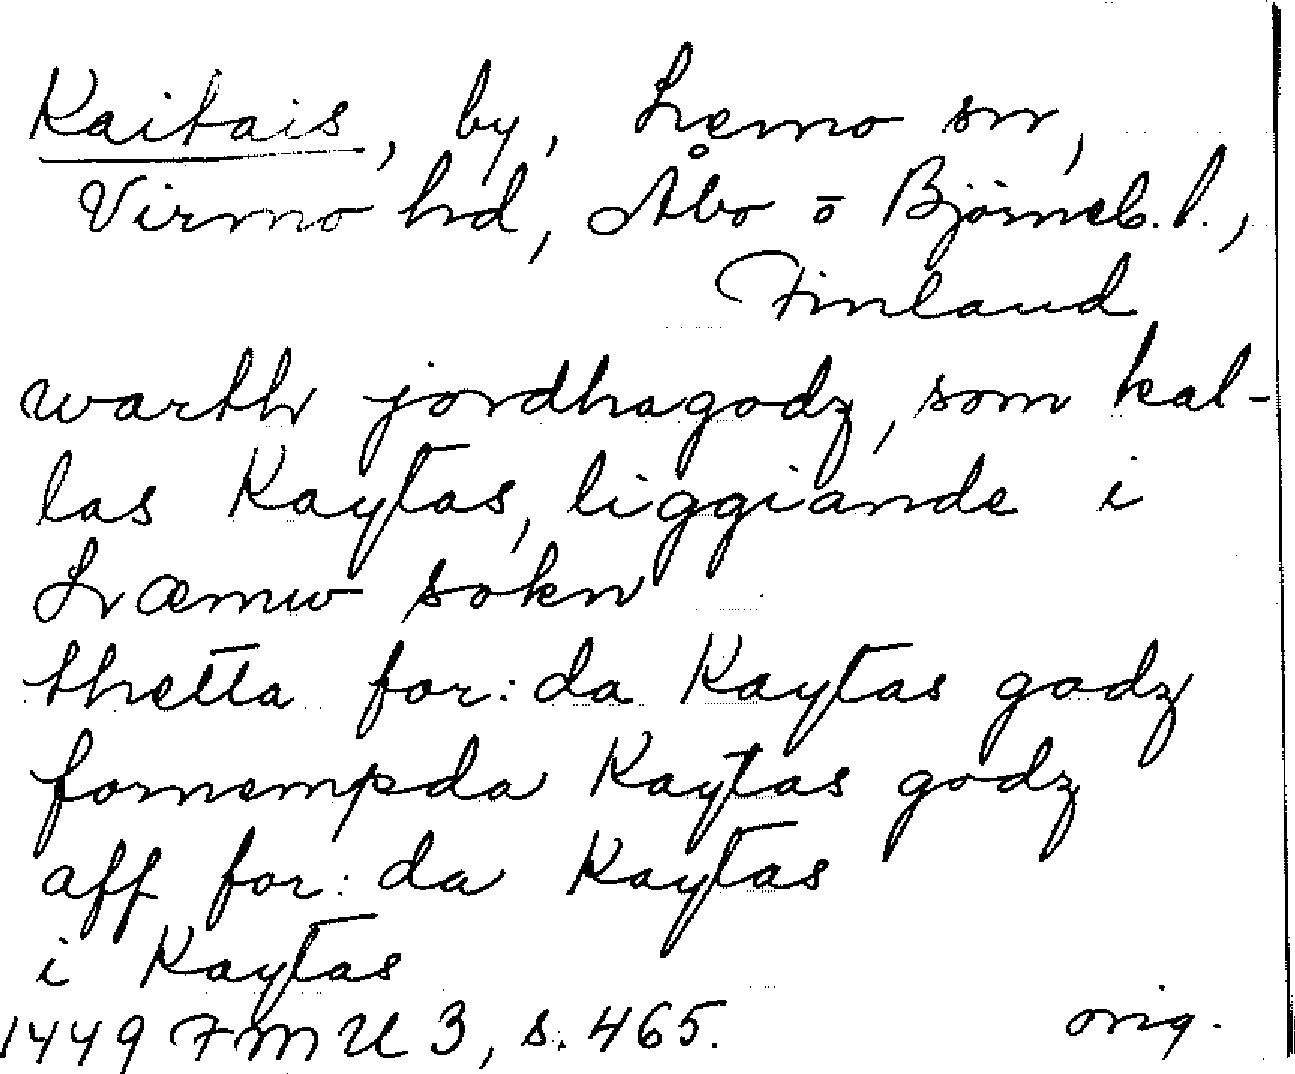 Kaitais, by, Lemo sn,
Virmo hd, Åbo o Björneb. l.,
Finland
warth jordhagodz, som kal-
las Kaytas, liggiande i
Læmw sokn
thetta for: da Kaytas godz
fornempda Kaytas godz
aff for: da Kaytas
i Kaytas
1449 FMU 3, s. 465. orig.